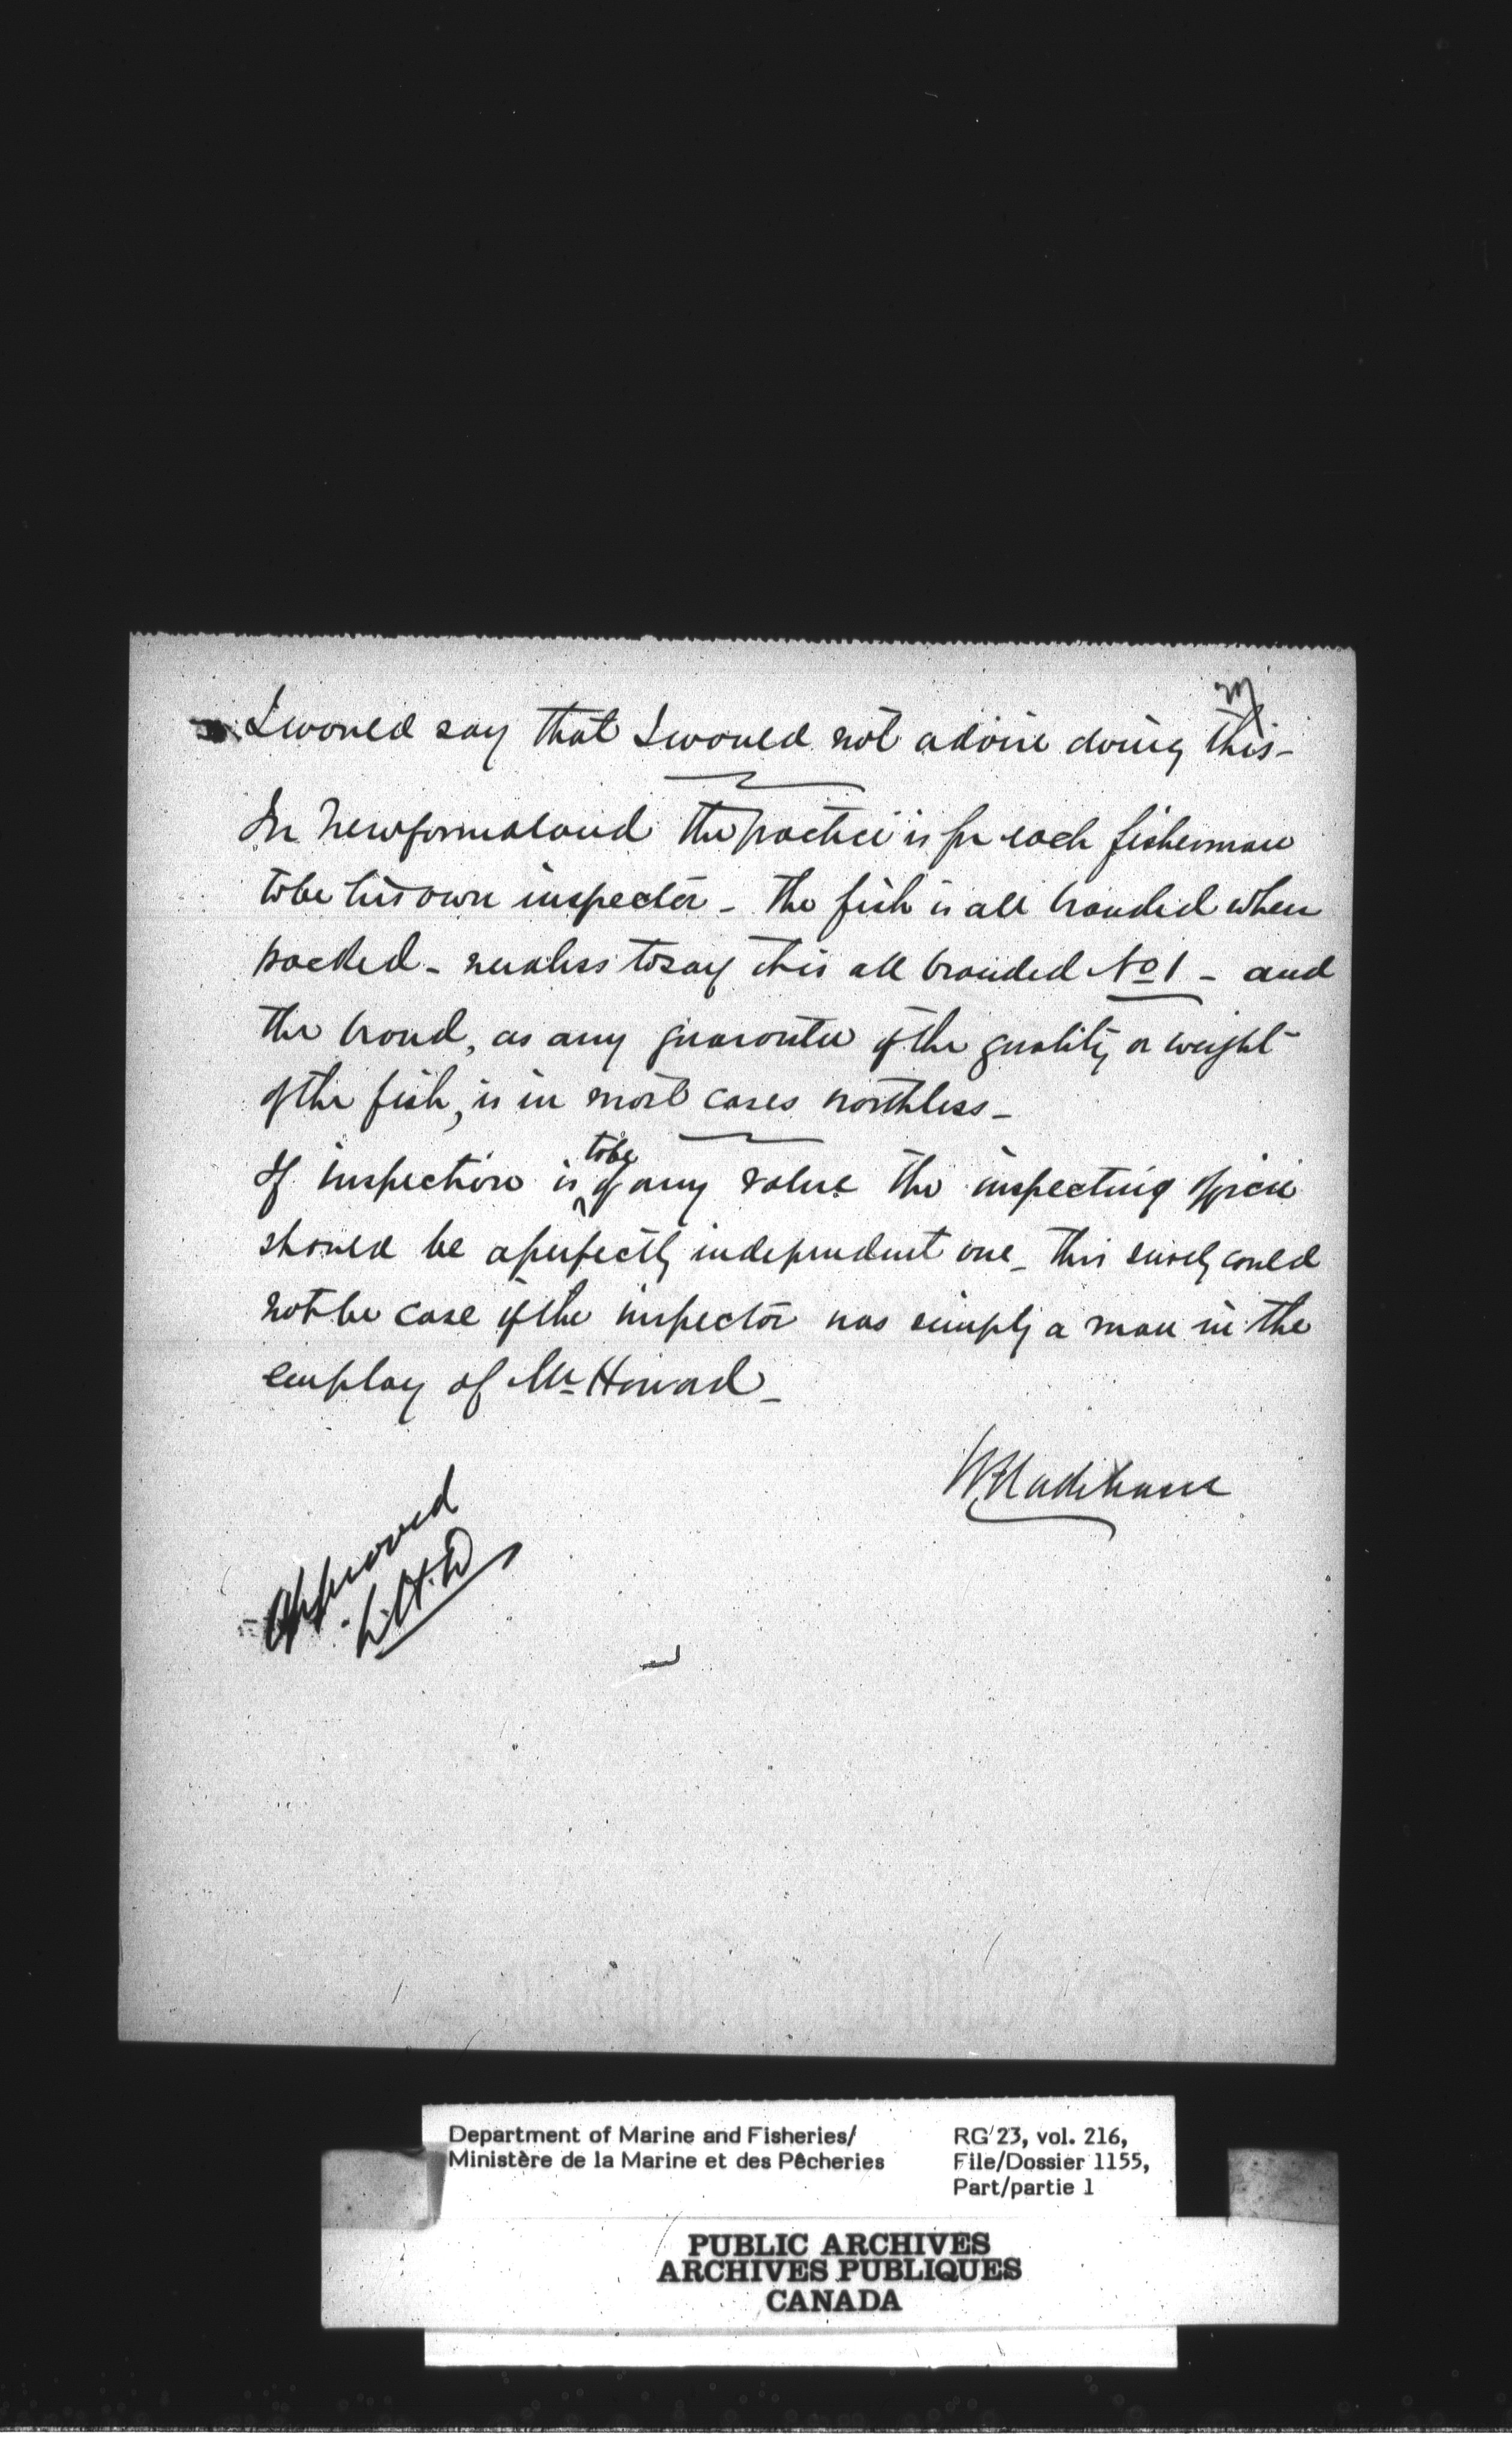 I would say that I would not advise doing this -
In Newfoundland the practice is for each fisherman
to be his own inspector - The fish is all branded when
packed - needless to say it is all branded No 1 - and
the brand, as any guarantee of the quality or weight
of the fish, is in most cases worthless -
to be
If inspection is of any value the inspecting officer
should be a perfectly independent one - this surely could
not be case if the inspector was simply a man in the
employ of Mr Howard -
Approved
Department of Marine and Fisheries/
Ministère de la Marine et des Pêcheries
RG 23, vol. 216,
File/Dossier 1155,
Part/partie 1
PUBLIC ARCHIVES
ARCHIVES PUBLIQUES
CANADA